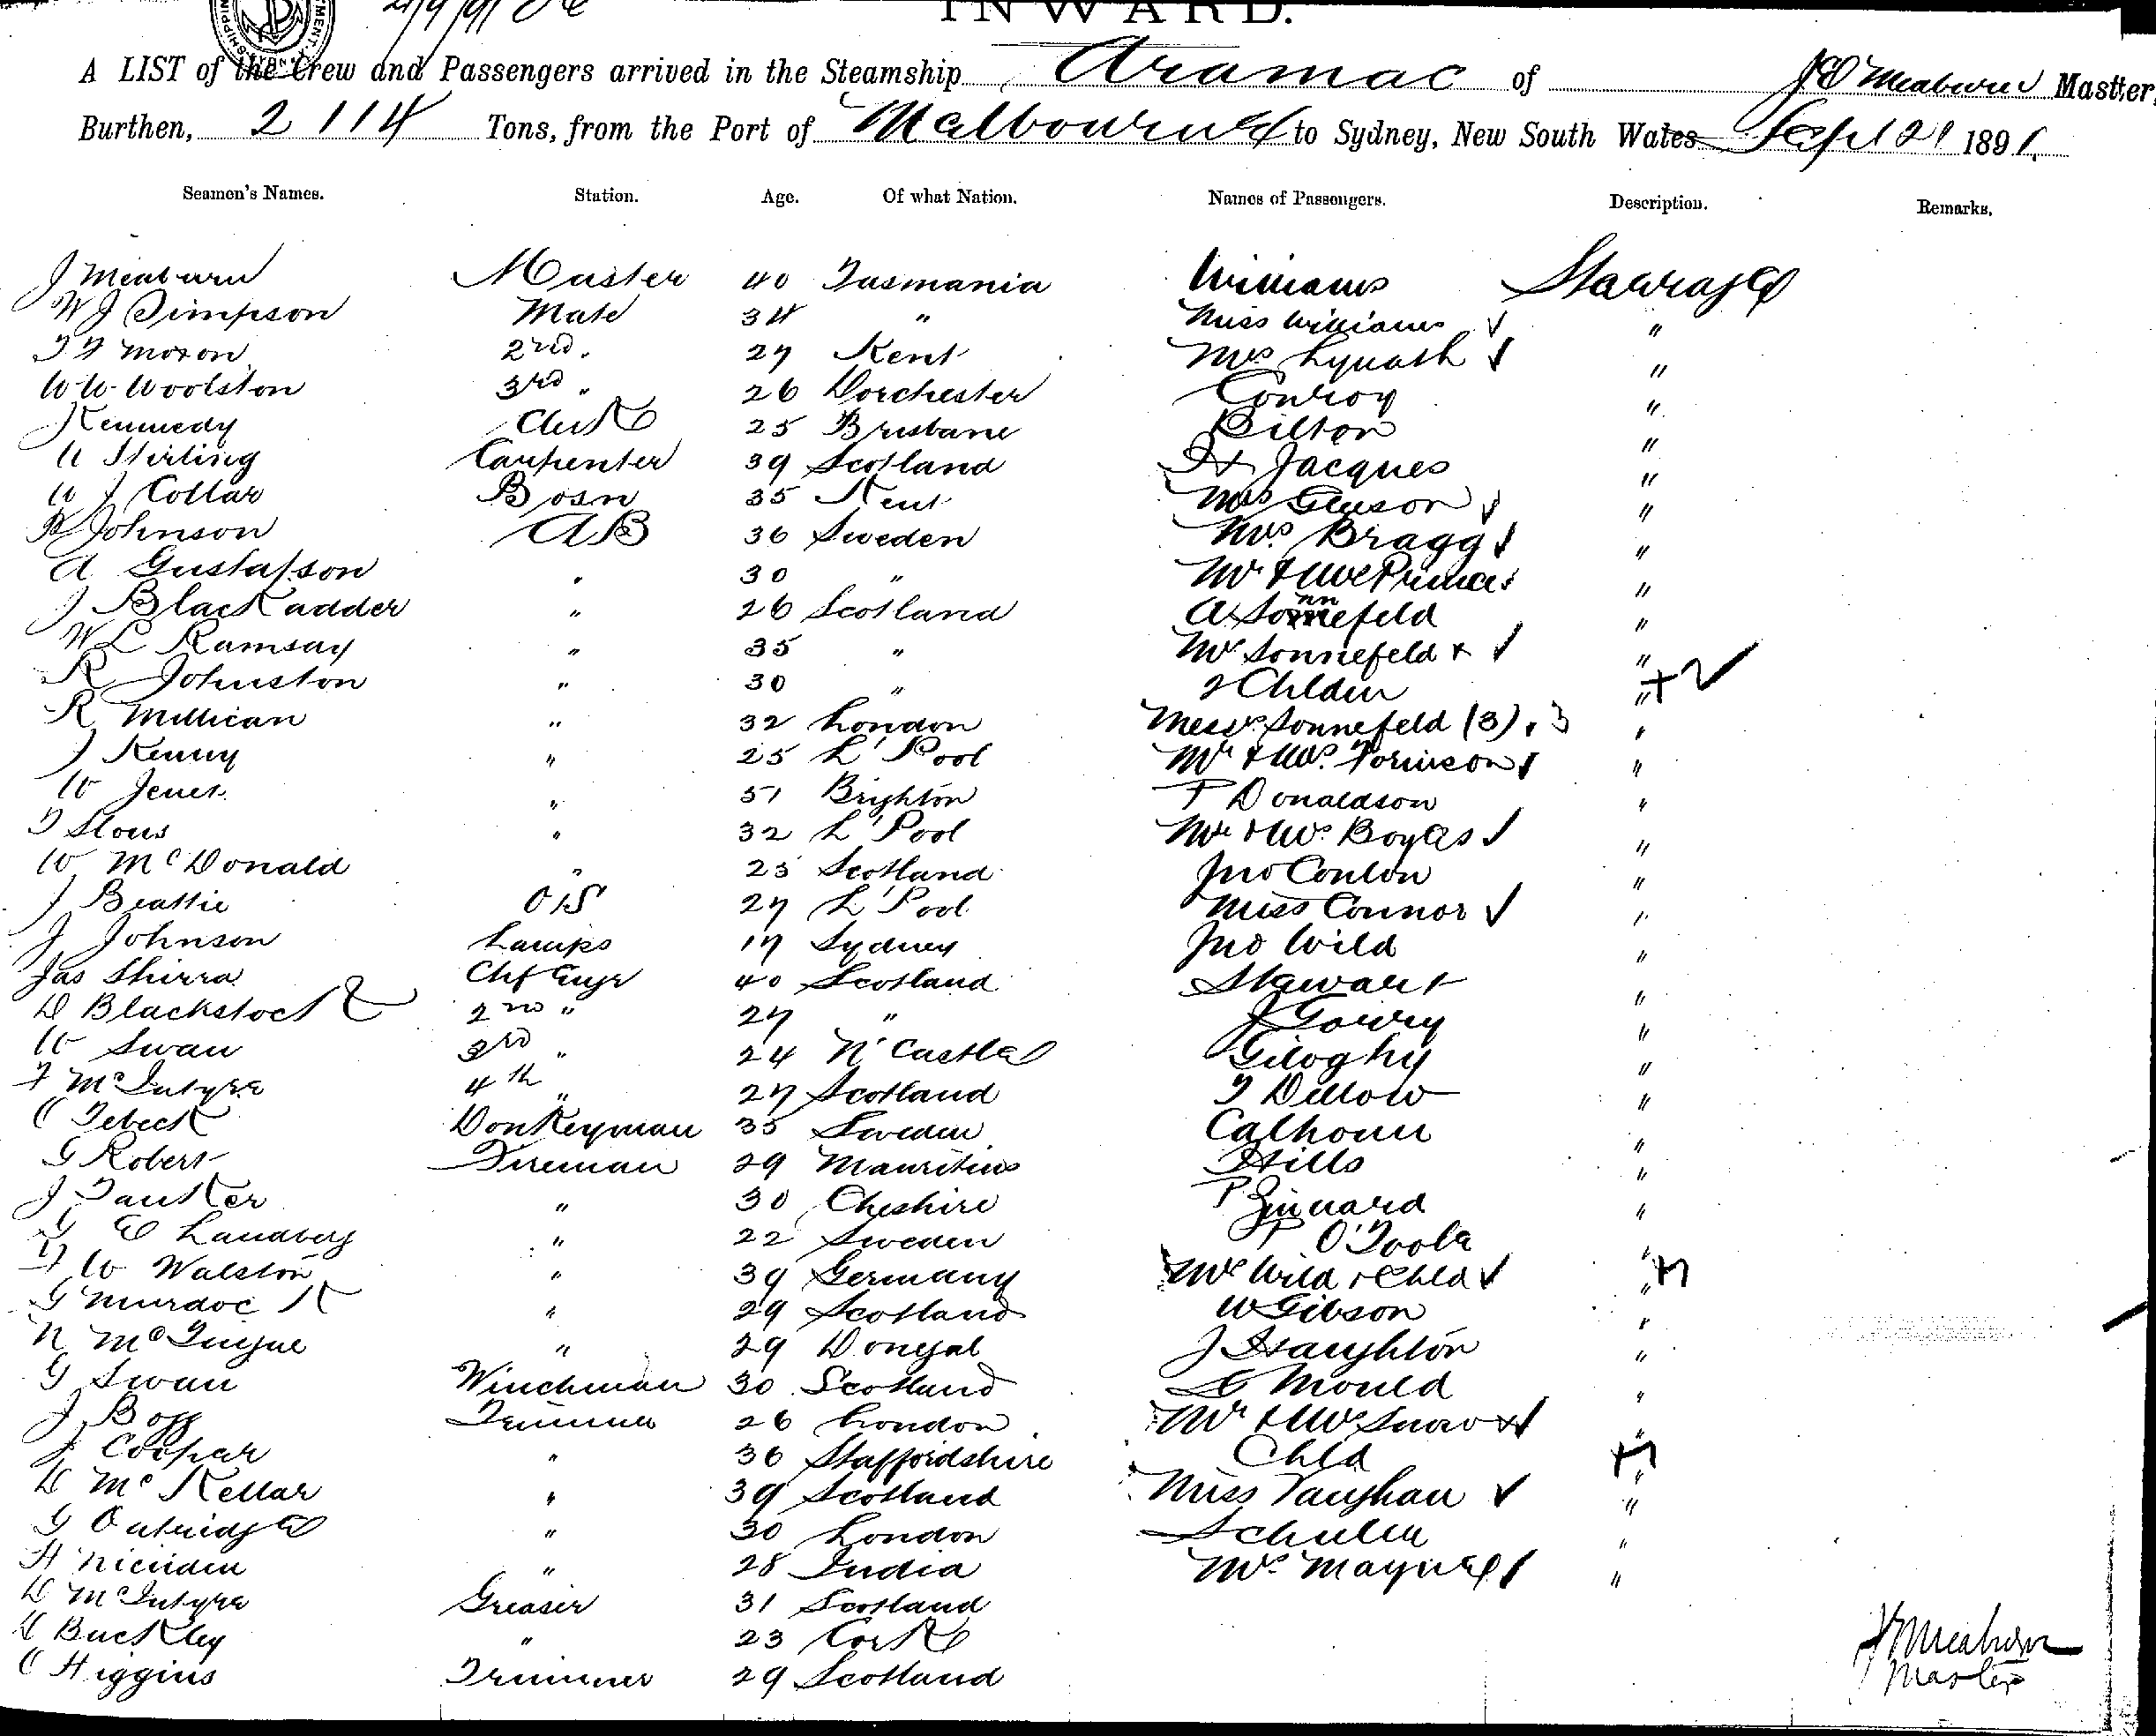 INWARD.
A LIST of the Crew and Passengers arrived in the Steamship Aramac of J Meaburn Master,
Burthen, 2114 Tons, from the Port of Melbourne to Sydney, New South Wales Sept 21 1891.
Seamen's Names. Station. Age. Of what Nation. Names of Passengers. Description. Remarks.
J Meaburn Master 40 Tasmania Williams Steerage
W J Simpson Mate 34 " Miss Williams "
Moxon 2nd " 27 Kent Mrs "
W W Woolston 3rd " 26 Dorchester Conroy "
Kennedy Clerk 25 Brisbane Bilton "
W Stirling Carpenter 39 Scotland Jacques "
W J Collar Bosn 35 Kent Mrs Gleeson "
Johnson AB 36 Sweden Mrs Bragg "
A Gustafson " 30 " Mr & Mrs "
J Blackadder " 26 Scotland A Sonnefeld "
W L Ramsay " 35 " Mrs Sonnefeld + "
R Johnston " 30 " 2 Childen " +2
R Millican " 32 London Mess Sonnefeld (3) 3 "
J Kenny " 25 L'Pool Mr & Mrs "
W " 51 Brighton P Donaldson "
" 32 L'Pool Mr & Mrs "
W McDonald " 23 Scotland Jno Conlon "
J Beattie O/S 27 L'Pool Miss Connor "
J Johnson Lamps 17 Sydney Jno Wild "
Jas Shirra Chf Engr 40 Scotland Stewart "
D Blackstock 2nd " 27 " J Gowry "
W Swan 3rd " 24 N'Castle "
F McIntyre 4th " 27 Scotland T Dillow "
C Tebeck Donkeyman 35 Sweden Calhoun "
G Robert Fireman 29 Mauritius Hills "
J " 30 Cheshire P "
G E Landberg " 22 Sweden P O'Toole "
W Walston " 39 Germany Mrs Wild + Chld "
G Murdock " 29 Scotland W Gibson "
N " 29 Donegal J Haughton "
G Swan Winchman 30 Scotland Mould "
J Trimmer 26 London Mr & Mrs Snow + "
J Cooper " 36 Staffordshire Chld "
D McKellar " 39 Scotland Miss Vaughan "
G Outridge " 30 London "
H " 28 India Mrs "
D McIntyre Greaser 31 Scotland
Buckley " 23 Cork
C Higgins Trimmer 29 Scotland
J Meaburn
Master